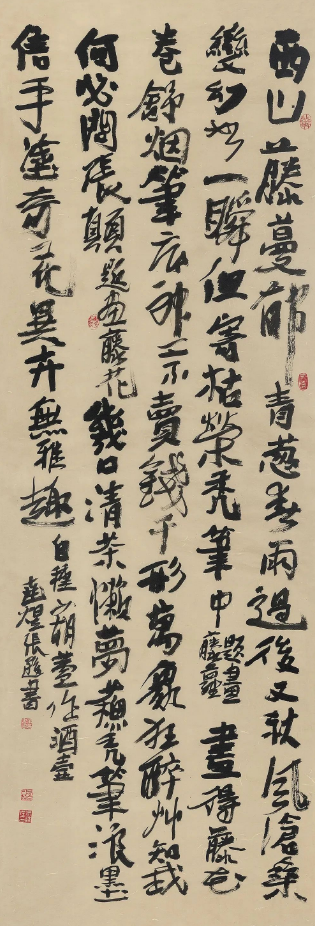 西山藤蔓節青葱春雨過後又秋風滄桑
變幻如一瞬但寄枯榮禿筆中 題畫藤蘿 畫得藤花
卷舒烟筆底神工不賣錢千形萬象狂醉艸知我
何必問張顛 題画藤花 幾口清茶懶夢蘇禿筆浪墨
信手塗奇花異卉無雅趣 自種葫蘆作酒壺
張 書